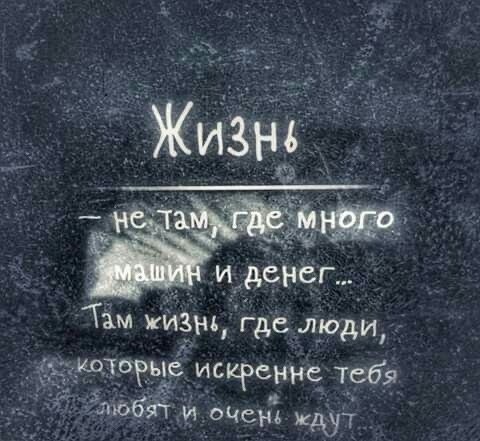 Жизнь
— не там, где много
машин и денег...
Там жизнь, где люди,
которые искренне тебя
любят и очень ждут